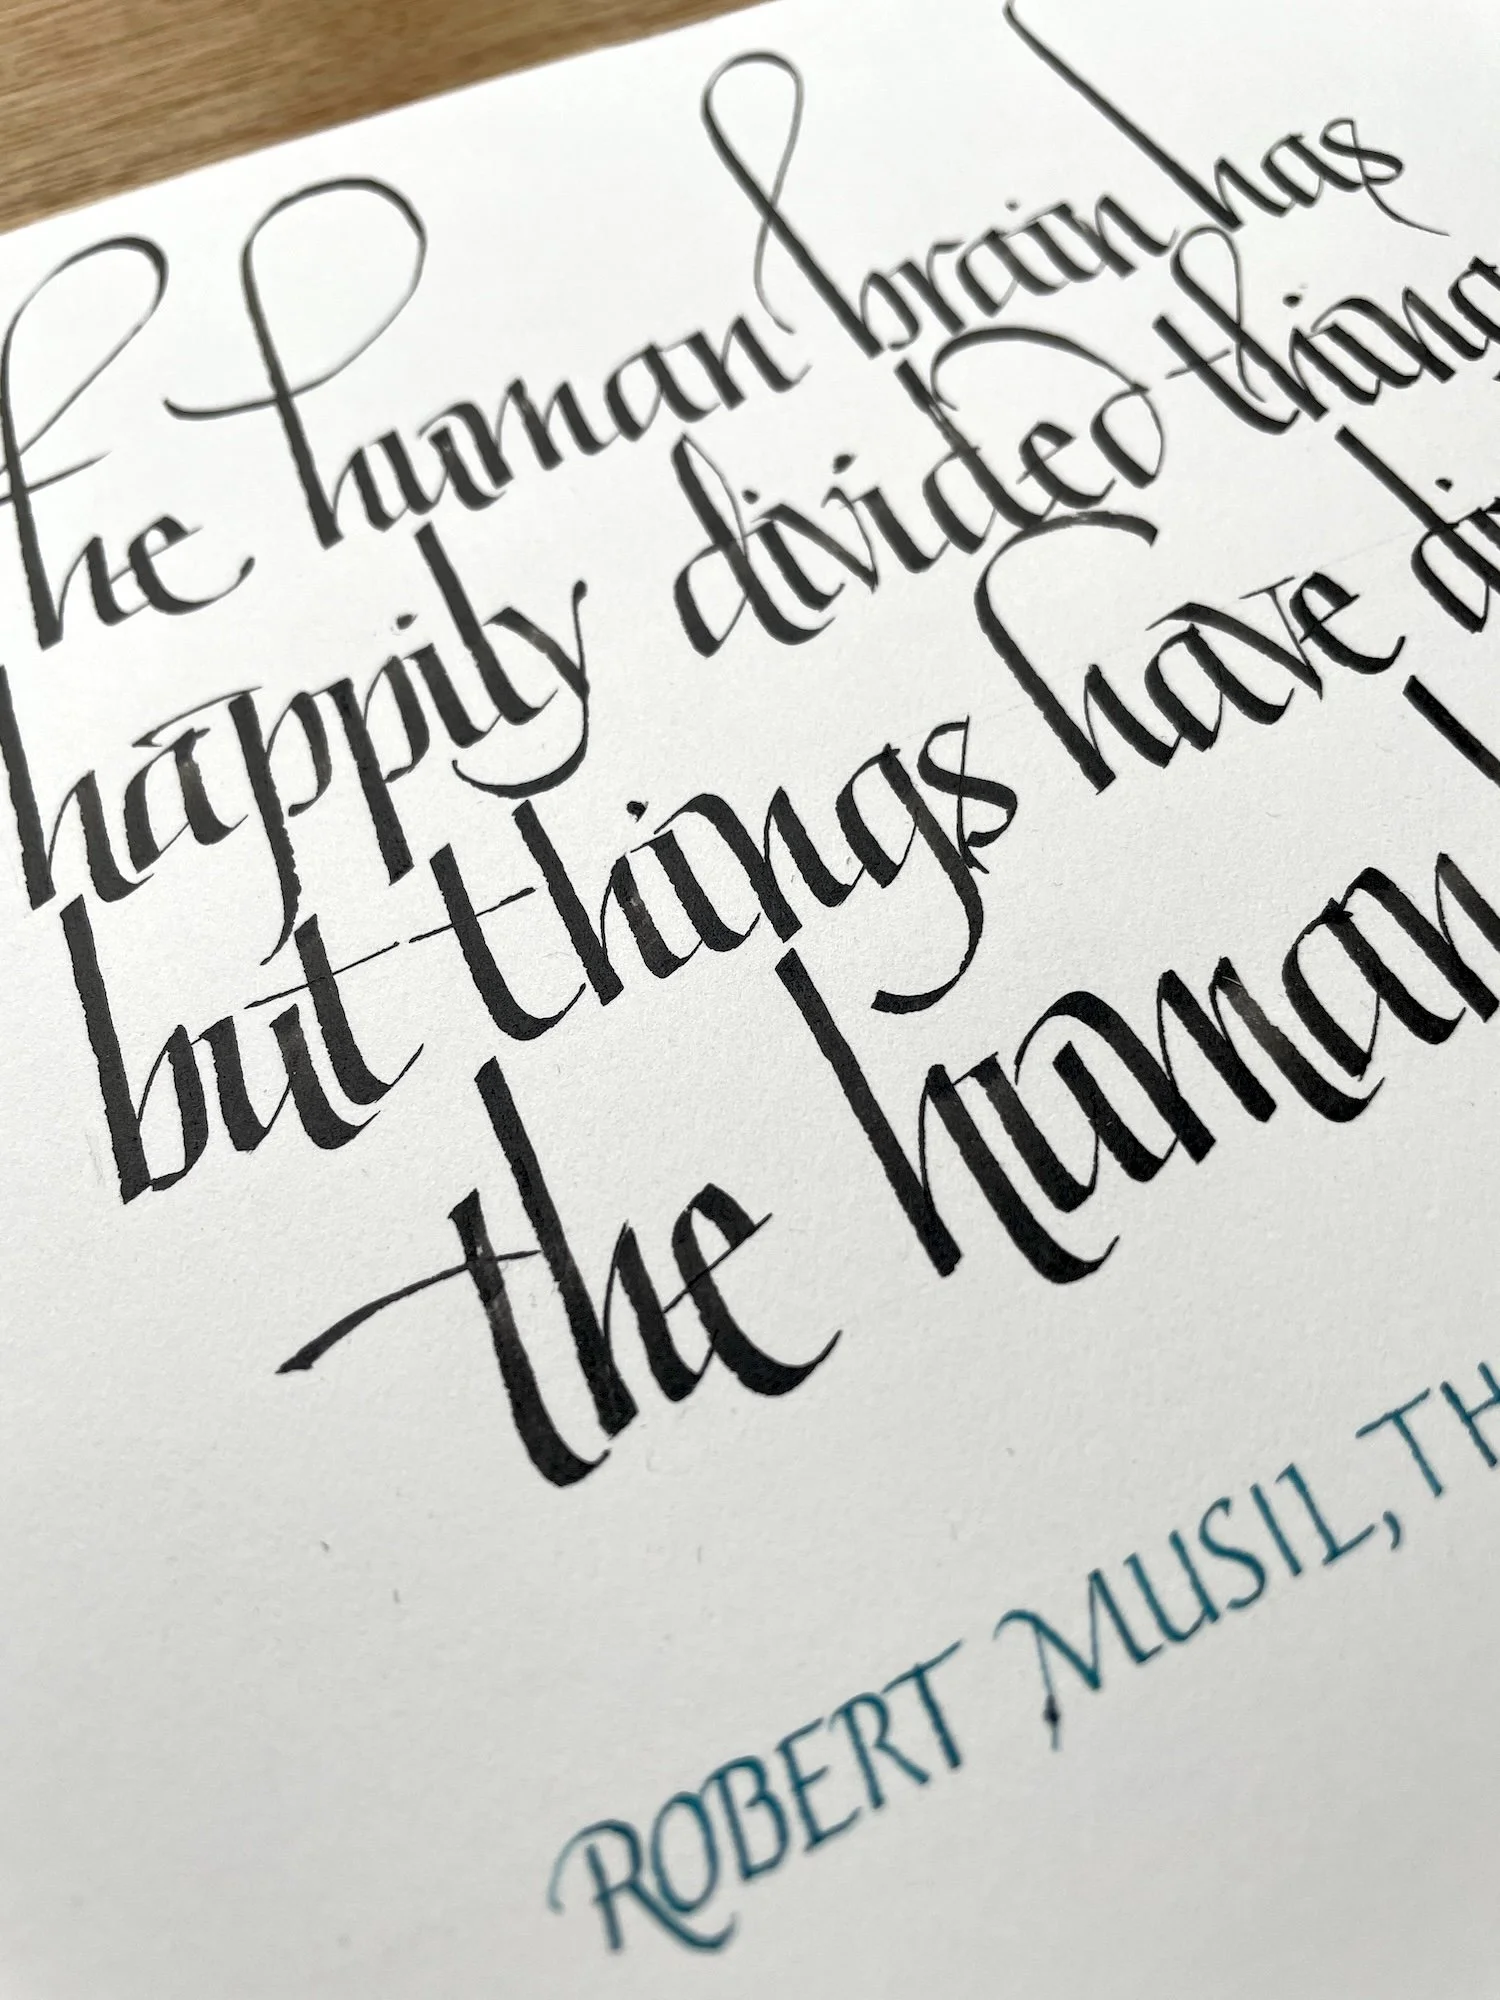 he human brain has
happily divided thing
but things have di
the human
ROBERT MUSIL, TH